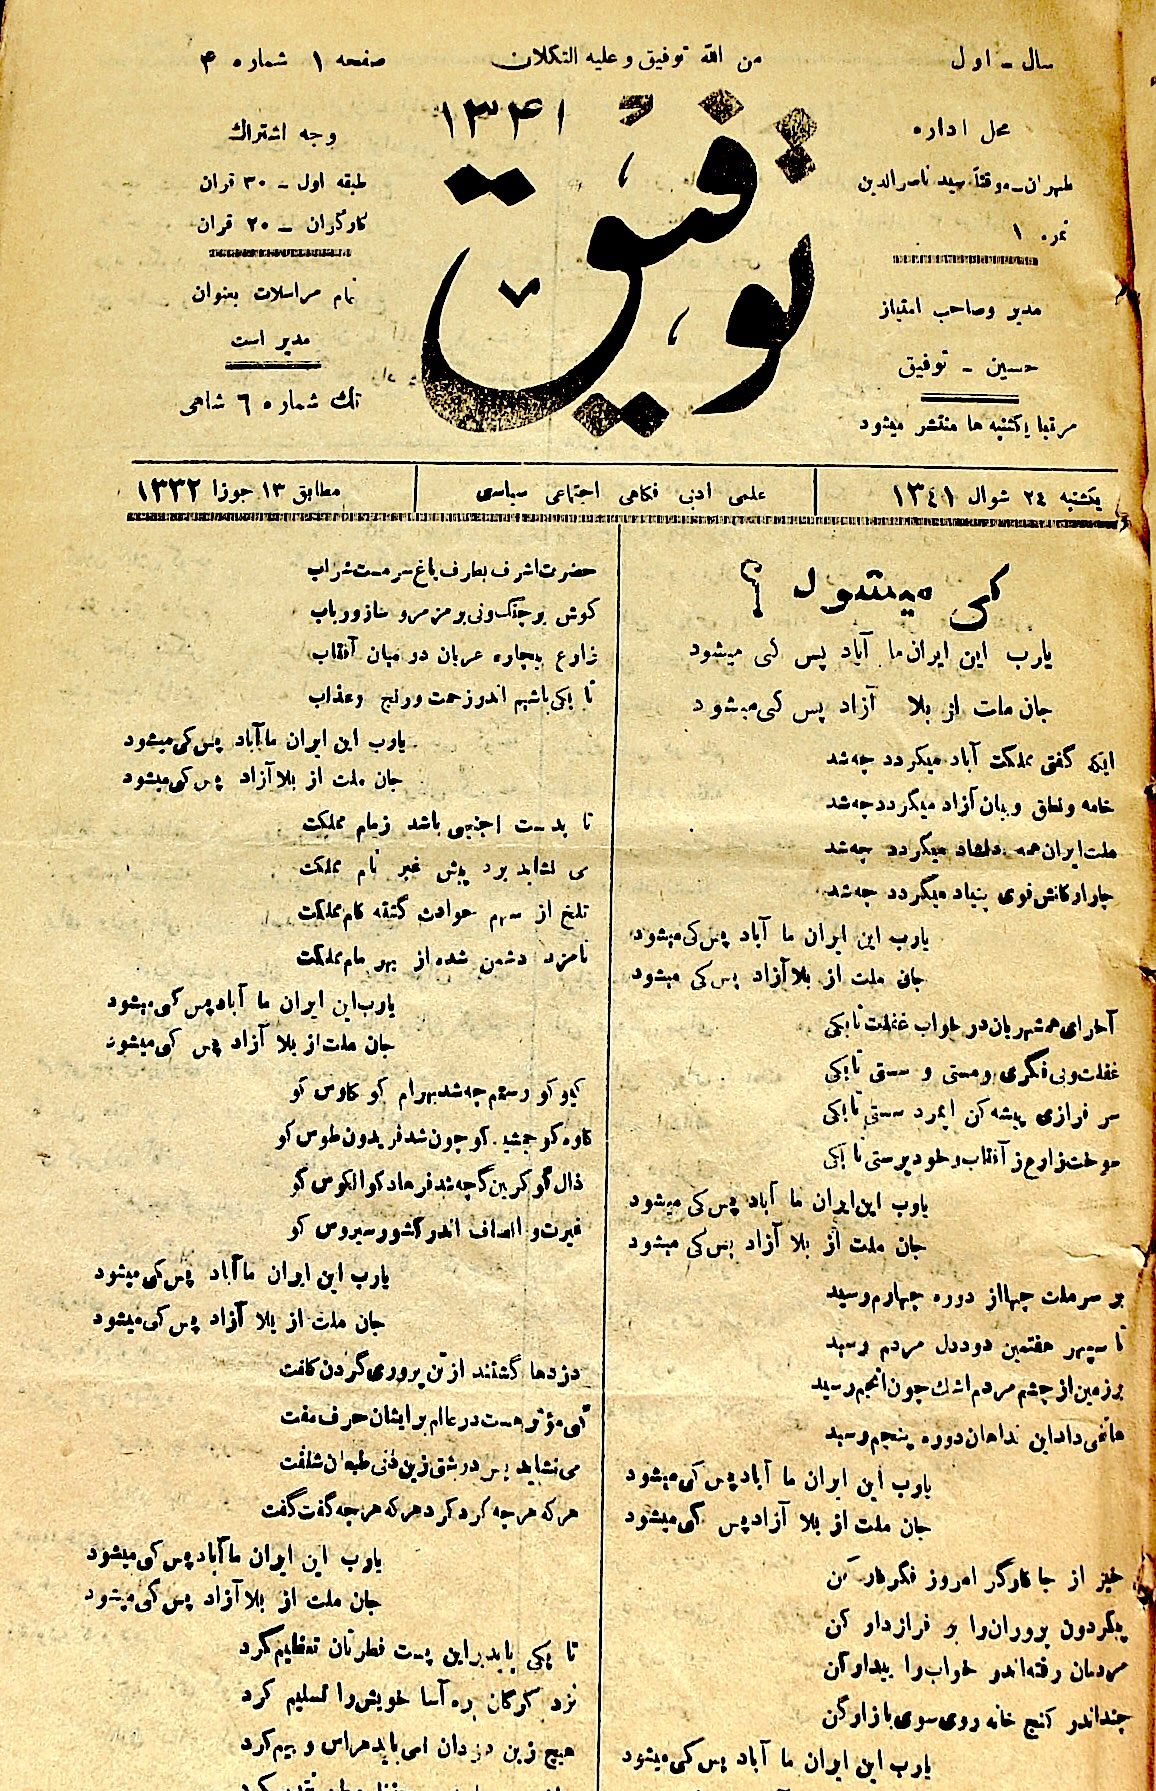 سال ـ اول
من الله توفیق و علیه التکلان
صفحه ۱ شماره ۴
محل اداره
طهران ـ موقتاً سید ناصرالدین
نمره ۱
مدیر وصاحب امتیاز
حسین ـ توفیق
مرتبا یکشنبه ها منتشر میشود
توفیق
۱۳۴۱
وجه اشتراک
طبقه اول ـ ۳۰ قران
کارگران ـ ۲۰ قران
تمام مراسلات بعنوان
مدیر است
تک شماره ۶ شاهی
یکشنبه ۲٤ شوال ۱۳٤۱
علمی ادبی فکاهی اجتماعی سیاسی
مطابق ۱۳ جوزا ۱۳۳۲
کی میشود ؟
یارب این ایران ما آباد پس کی میشود
جان ملت از بلا آزاد پس کی میشود
ایکه گفتی مملکت آباد میگردد چه شد
خامه ونطق و بیان آزاد میگردد چه شد
ملت ایران همه دلشاد میگردد چه شد
چار ارکانش قوی بنیاد میگردد چه شد
یارب این ایران ما آباد پس کی میشود
جان ملت از بلا آزاد پس کی میشود
آخر ای همشهریان در خواب غفلت تا بکی
غفلت و بی فکری و مستی و سستی تا بکی
سر فرازی پیشه کن ایمرد سستی تا بکی
سوخت زارع ز آفتاب و خود پرستی تا بکی
یارب این ایران ما آباد پس کی میشود
جان ملت از بلا آزاد پس کی میشود
بر سر ملت چها از دوره چهارم رسید
تا سپهر هفتمین دود دل مردم رسید
بر زمین از چشم مردم اشک چون انجم رسید
هاتفی داد این ندا هان دوره پنجم رسید
یارب این ایران ما آباد پس کی میشود
جان ملت از بلا آزاد پس کی میشود
خیز از جا کارگر امروز فکر کار کن
پیکر دون پروران را بر فراز دار کن
مردمان رفته اندر خواب را بیدار کن
چند اندر کنج خانه روی سوی بازار کن
یارب این ایران ما آباد پس کی میشود
حضرت اشرف بطرف باغ سرمست شراب
گوش بر چنگ و نی بر مزمر و ساز و رباب
زارع بیچاره عریان در میان آفتاب
تا بکی باشیم اندر زحمت و رنج و عذاب
یارب این ایران ما آباد پس کی میشود
جان ملت از بلا آزاد پس کی میشود
تا بدست اجنبی باشد زمام مملکت
می نشاید برد پیش غیر نام مملکت
تلخ از سهم حوادث گشته کام مملکت
نامزد دشمن شده از بهر مام مملکت
یارب این ایران ما آباد پس کی میشود
جان ملت از بلا آزاد پس کی میشود
گیو کو و ستم چه شد بهرام کو کاوس کو
کاوه کو جمشید کو چون شد فریدون طوس کو
ذال کو گرگین چه شد فرهاد کو الکوس کو
غیرت و انصاف اندر کشور سیروس کو
یارب این ایران ما آباد پس کی میشود
جان ملت از بلا آزاد پس کی میشود
دزدها گشتند از تن پروری گردن کلفت
کی مؤثر هست در عالم بر ایشان حرف مفت
می نشاید پس در شق زین دنی طبعان شلفت
هر که هر چه کرد کرد هر که هر چه گفت گفت
یارب این ایران ما آباد پس کی میشود
جان ملت از بلا آزاد پس کی میشود
تا بکی باید بر این پست فطرتان تعظیم کرد
نزد گرگان بره آسا خویش را تسلیم کرد
هیچ زین دزدان نمی باید هراس و بیم کرد